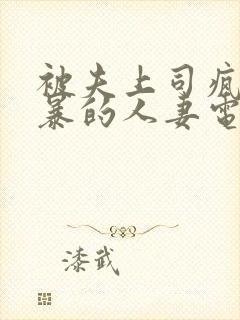 被夫上司疯
暴的人妻电
漆武